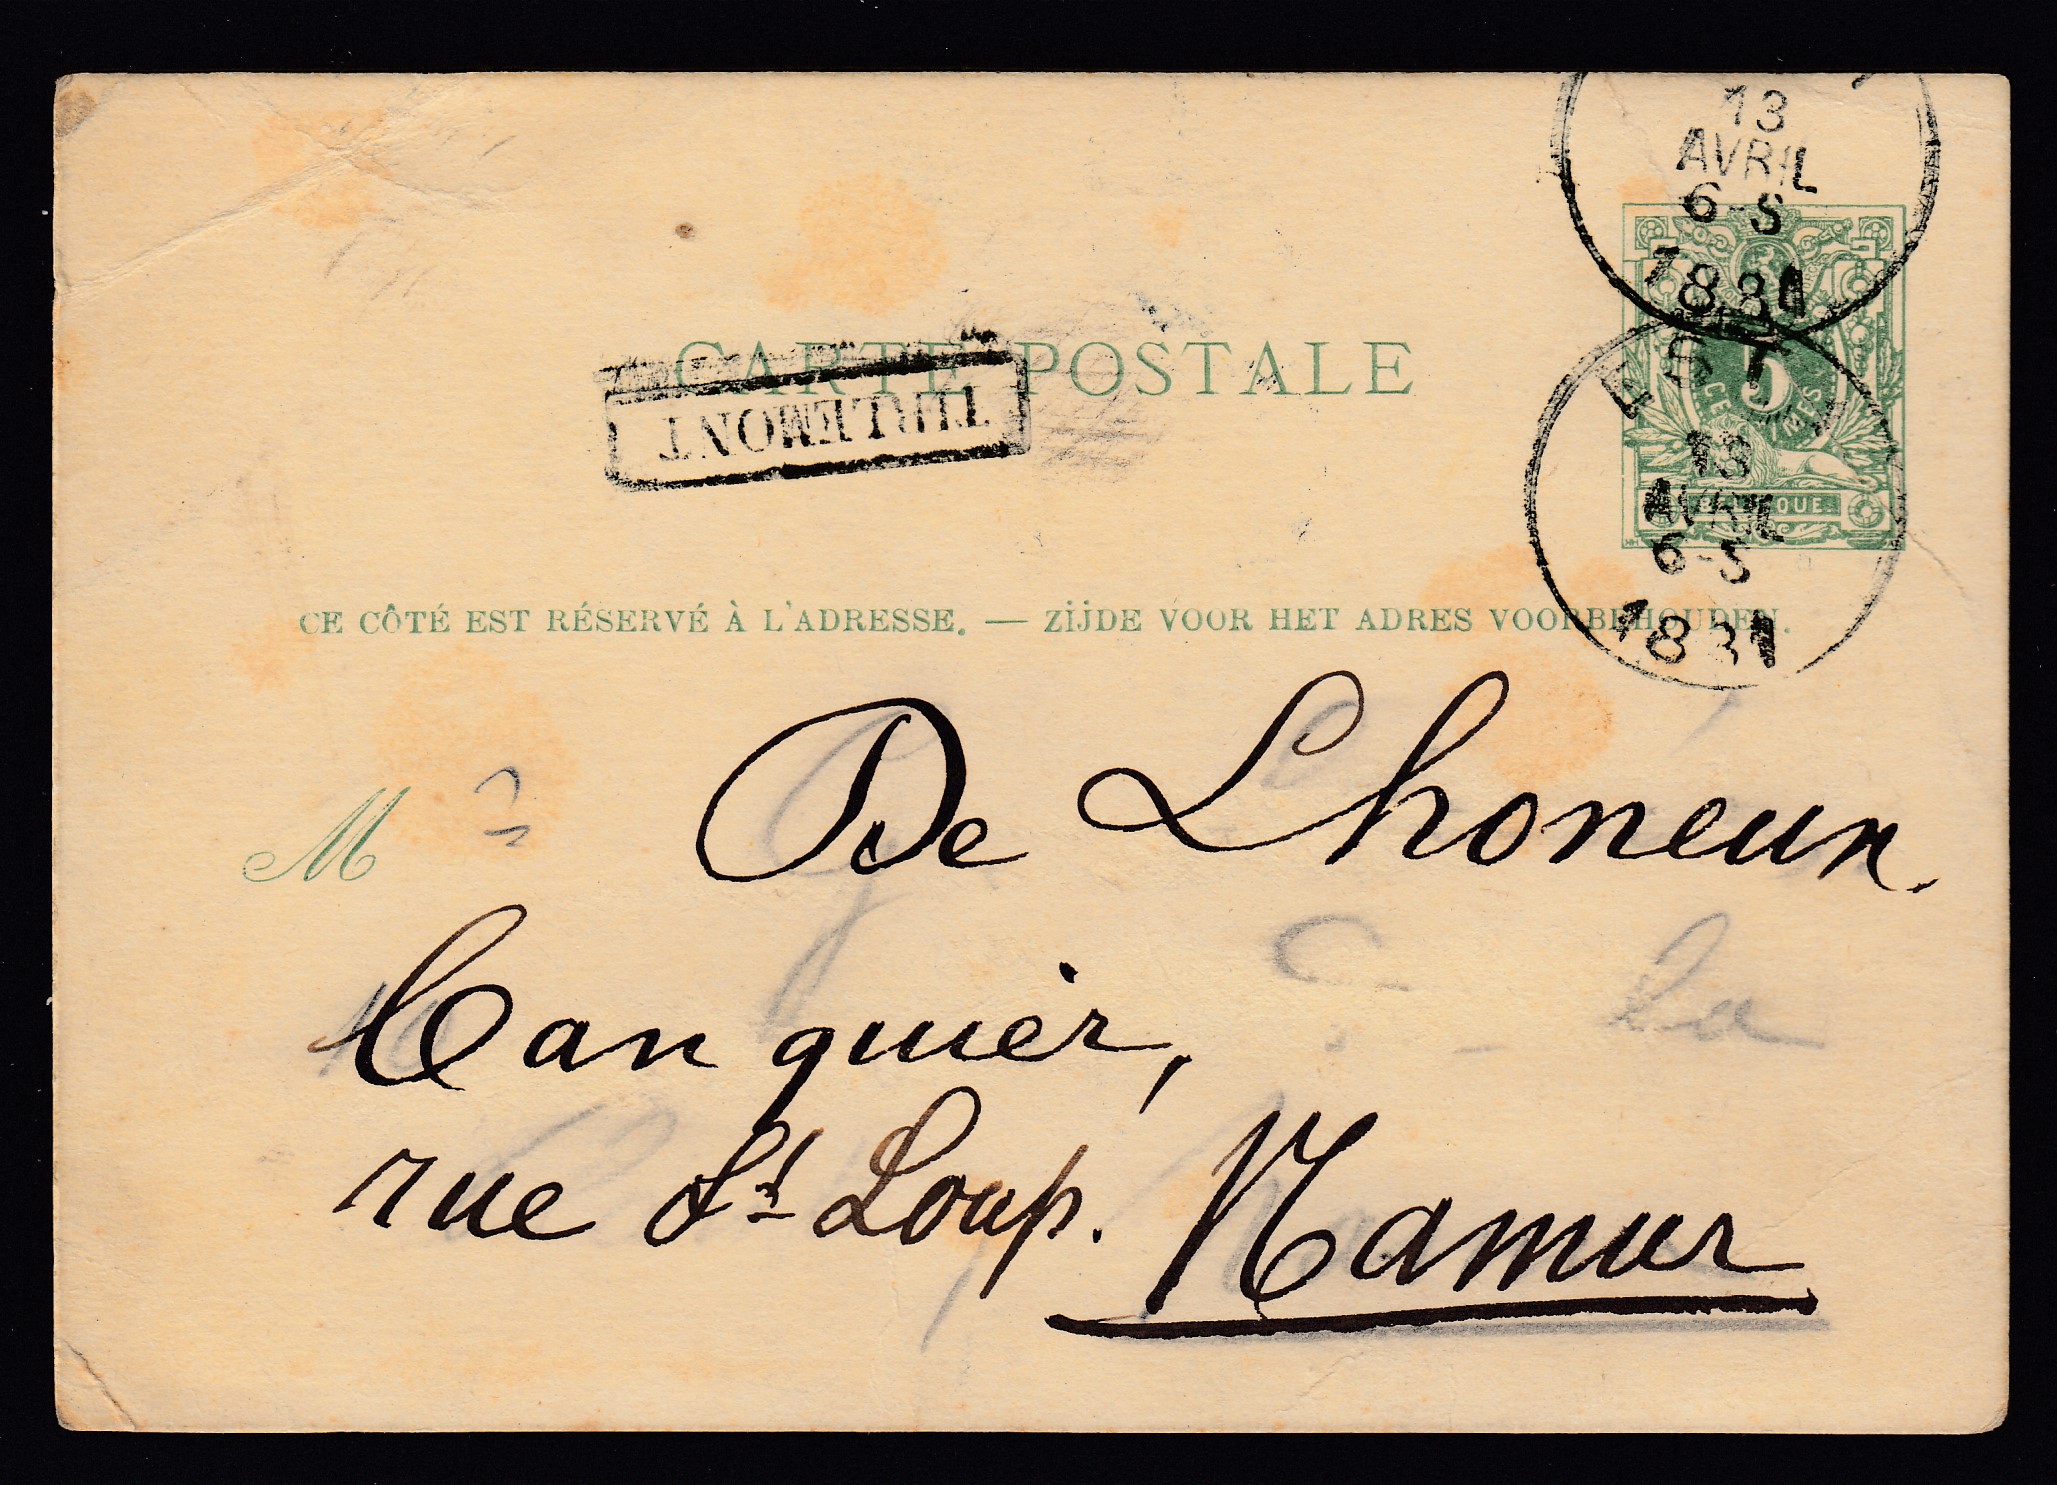 13
AVRIL
6-S
1881
5
CENTIMES
BELGIQUE
EST
13
AVRIL
6-S
1881
CARTE POSTALE
TIRLEMONT
CE CÔTÉ EST RÉSERVÉ À L'ADRESSE. — ZIJDE VOOR HET ADRES VOORBEHOUDEN.
M De Lhoneux.
banquier,
rue St Loup. Namur